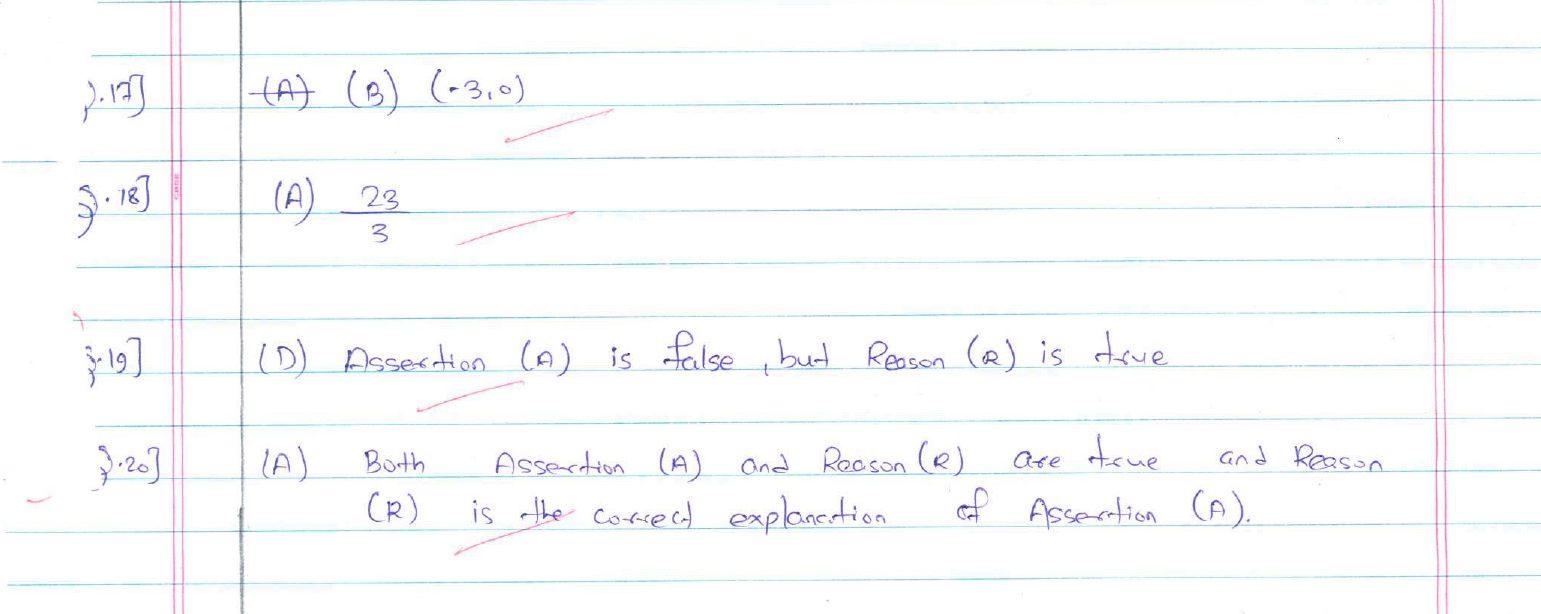 17] (A) (B) (-3,0)
18] (A) 23/3
19] (D) Assertion (A) is false, but Reason (R) is true
20] (A) Both Assertion (A) and Reason (R) are true and Reason
(R) is the correct explanation of Assertion (A).